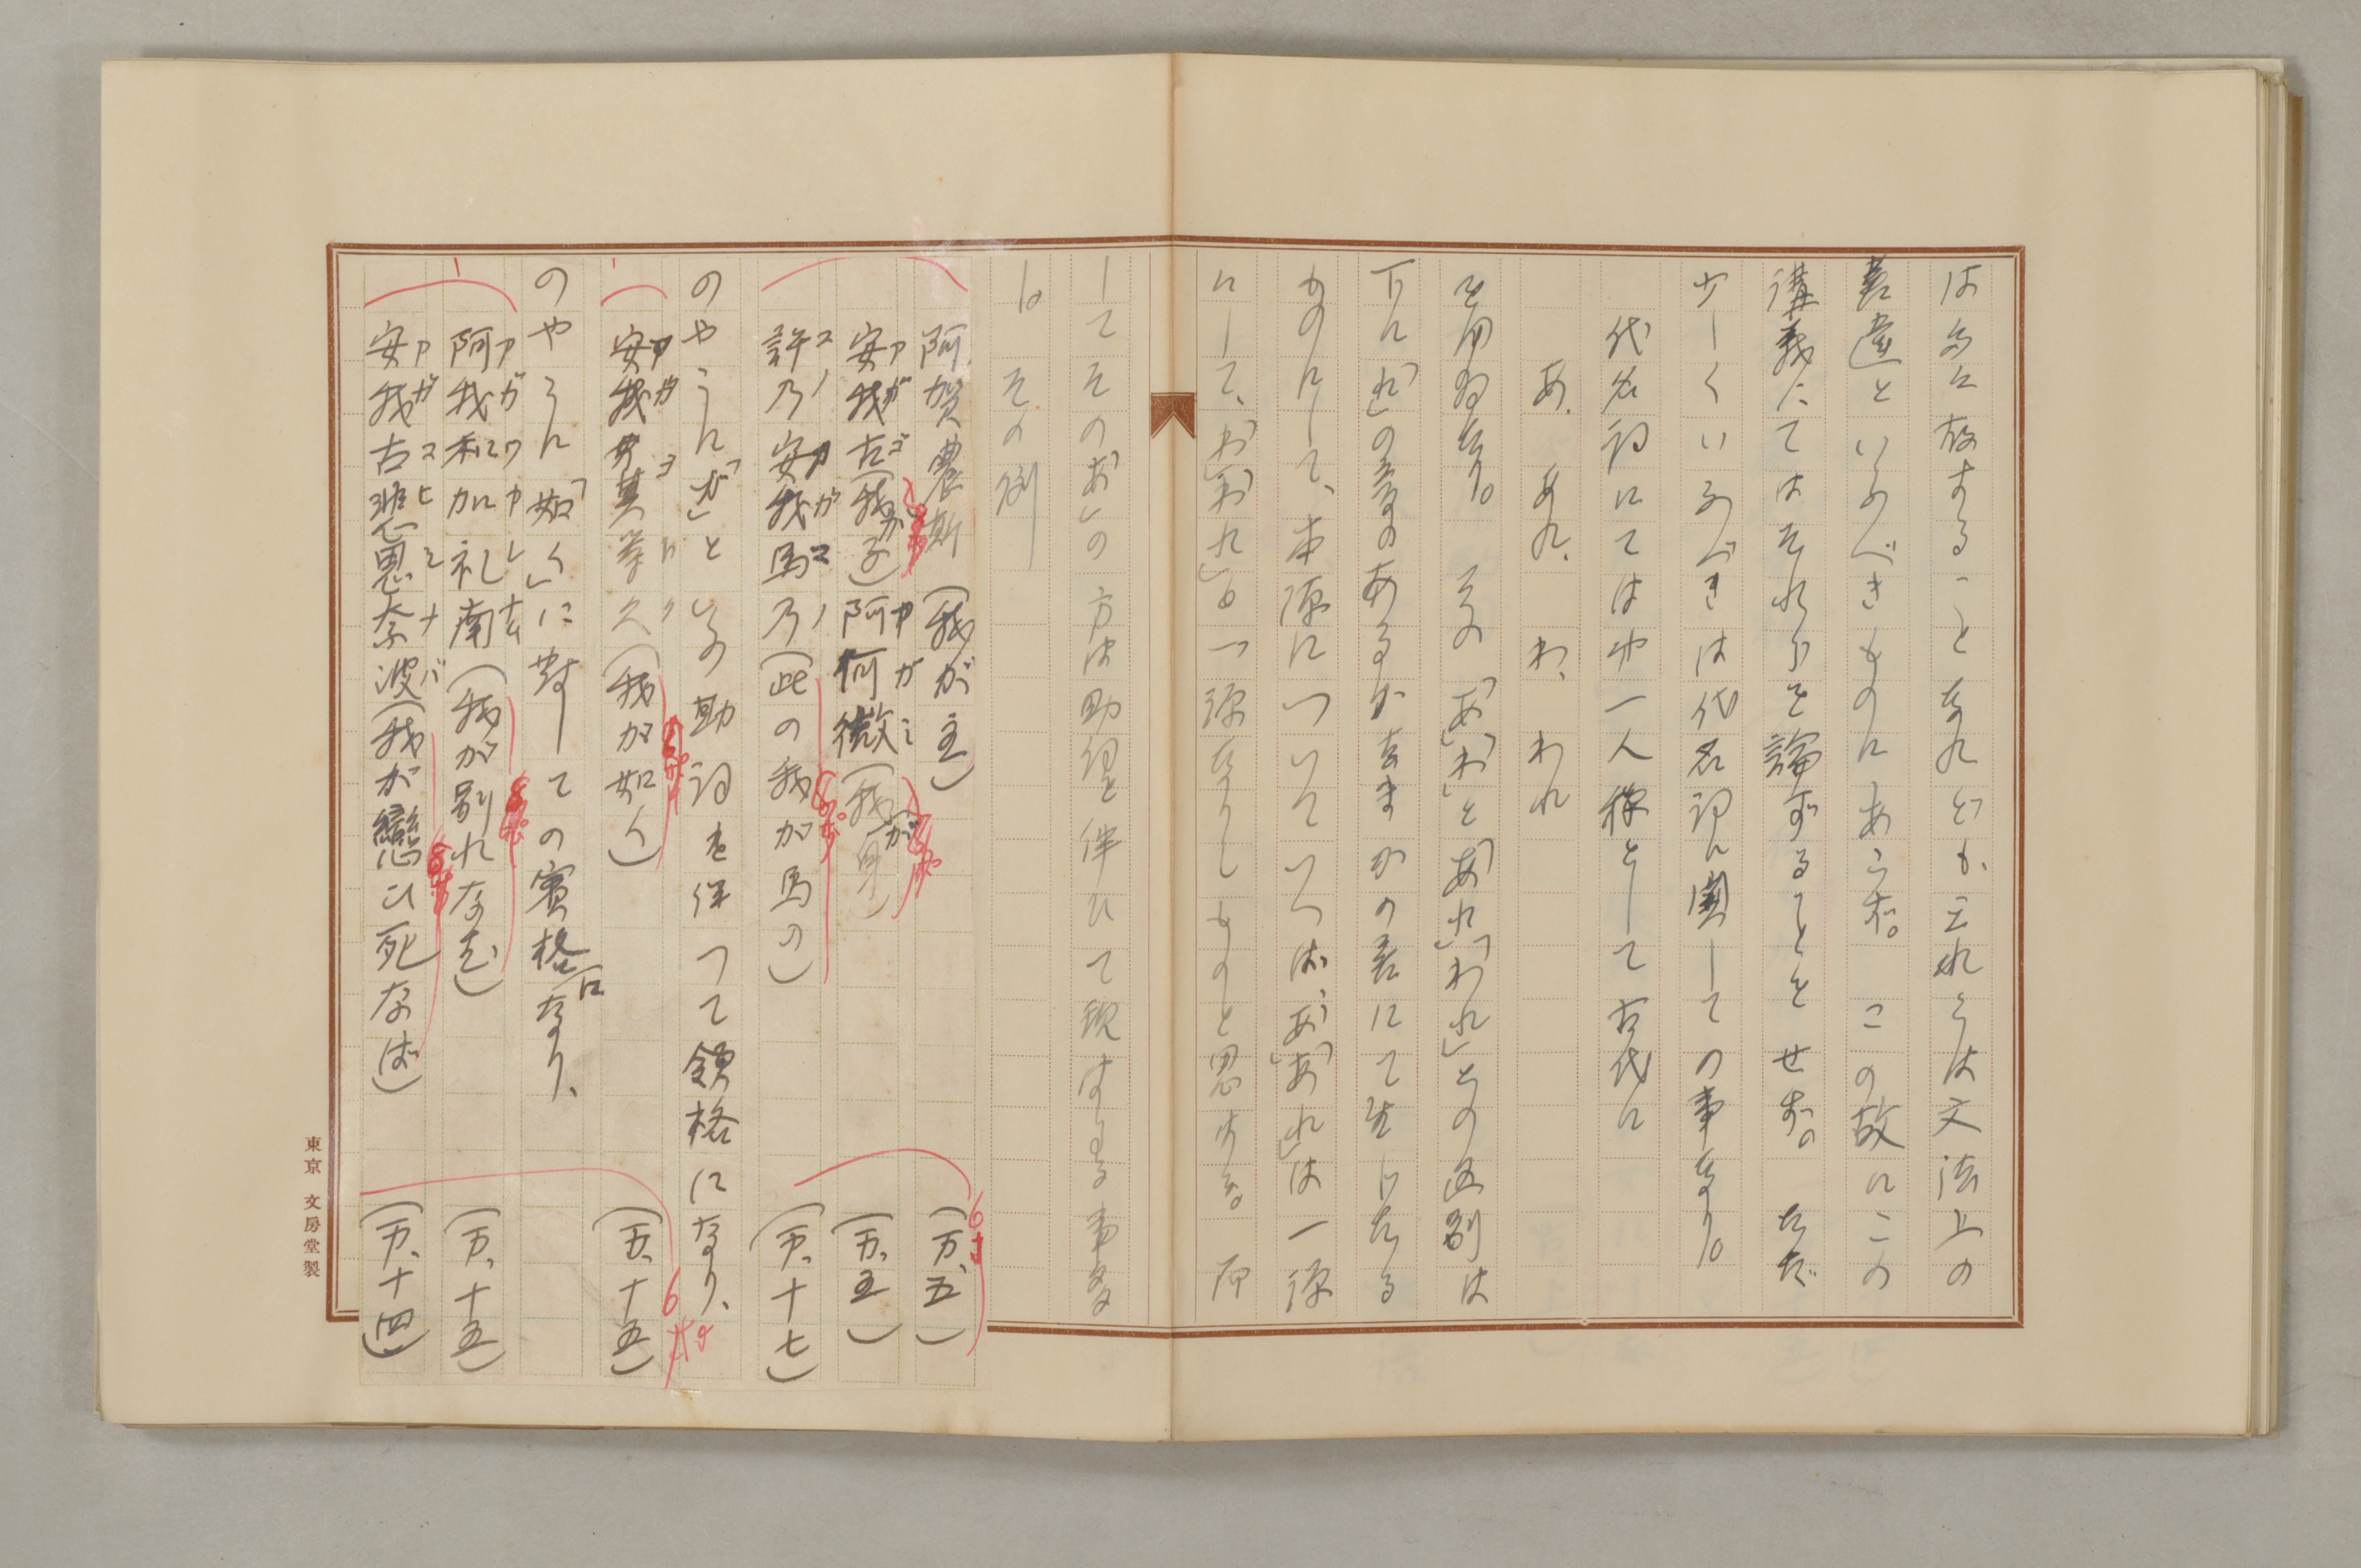 は多に存することなれども、これらは文法上の
差違といふべきものにあらず。この故にこの
講義にてはそれらを論ずることをせず。ただ
少しくいふべきは代名詞に関しての事なり。
代名詞にては中一人称として古代に
あ、あれ、わ、われ
を用ゐたり。その「あ」「わ」と「あれ」「われ」との区別は
下に「れ」の音のあるかなきかの差にて生じたる
ものにして、本源についていへば、「あ」「あれ」は一源
にして、「わ」「われ」も一源なりしものと思はる。而
してその「あ」の方は助詞を伴ひて現はるる事多
し。その例
阿賀農斯(我が主) (万、五)
安我古(我が子)阿何微(我が身) (万、五)
許乃安我馬乃(此の我が馬の) (万、十七)
のやうに「が」といふ助詞を伴つて領格になり、
安我其等久(我が如く) (万、十五)
のやうに「如く」に対しての賓格になり、
阿我和加礼南(我が別れなむ) (万、十五)
安我古非思奈波(我が戀ひ死なば) (万、十四)
東京 文房堂製